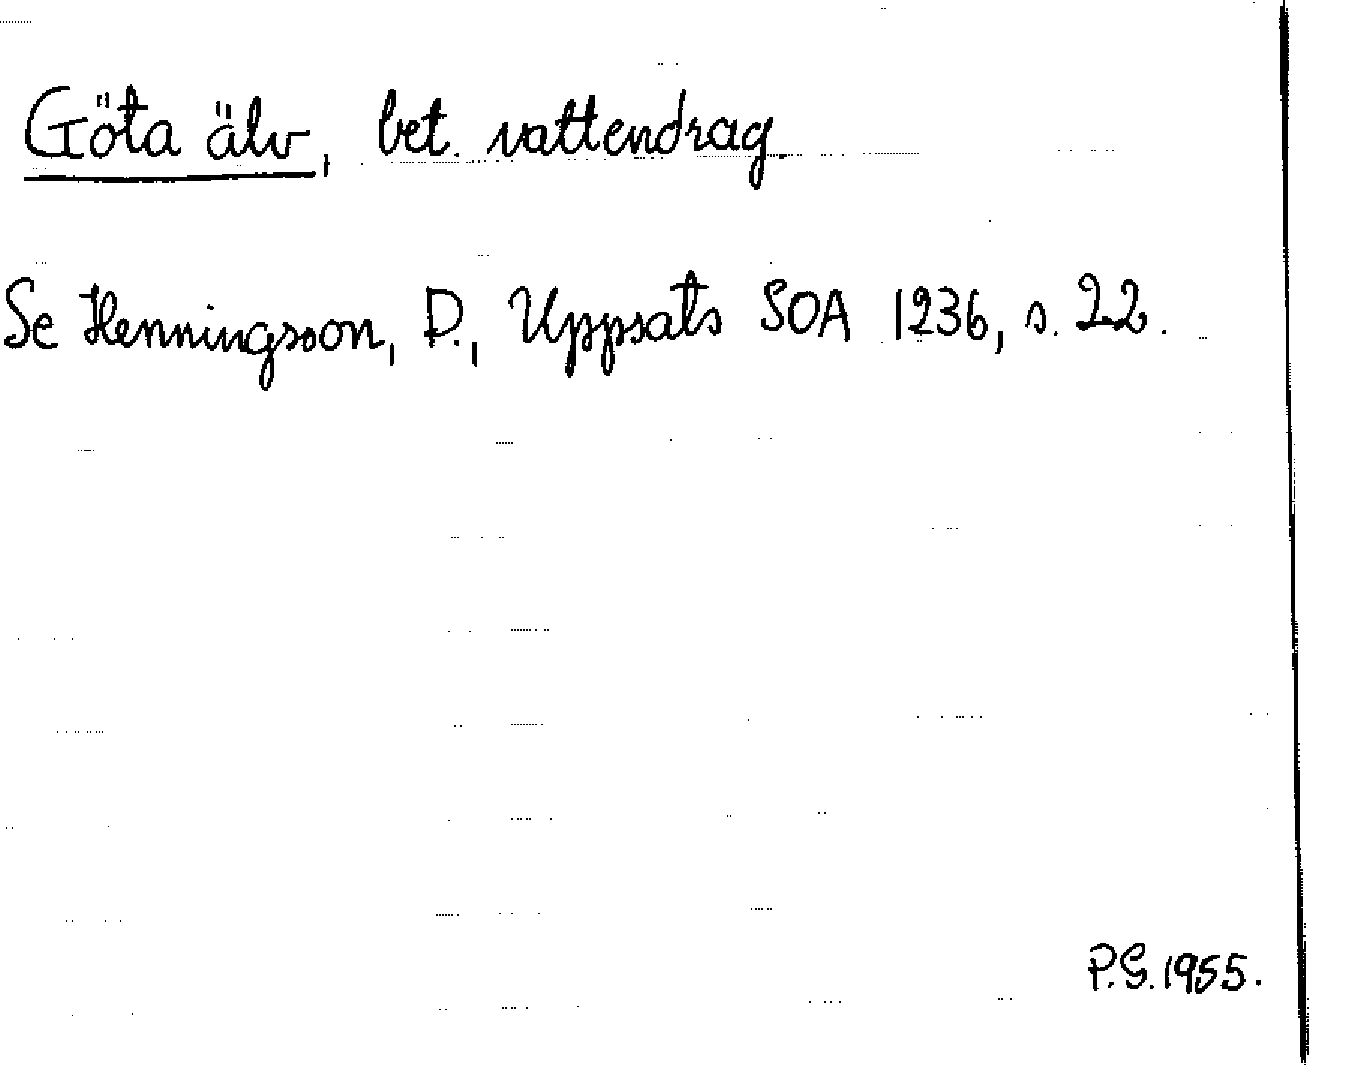 Göta älv, bet. vattendrag
Se Henningsson, D., Uppsats SOA 1236, s. 22.
P.G. 1955.